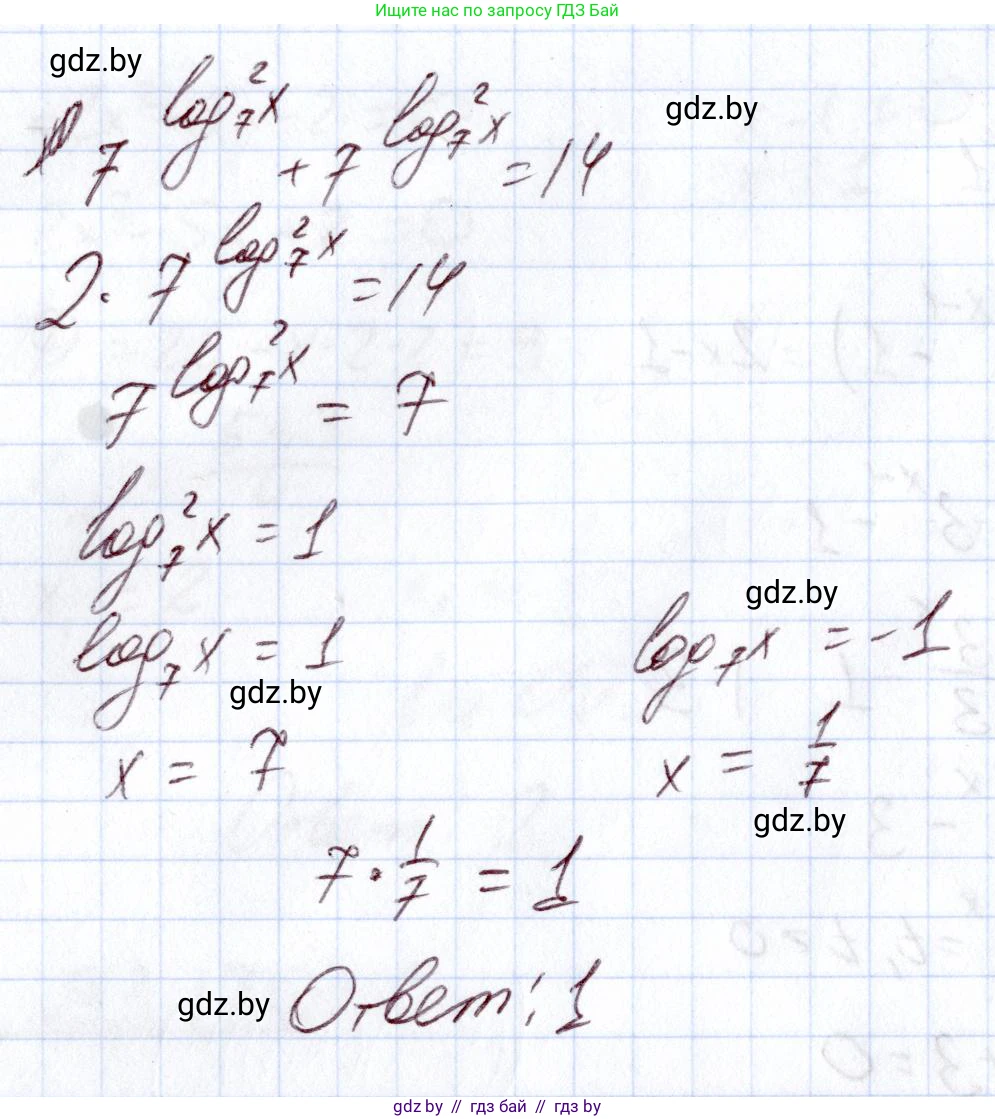 Ищите нас по запросу ГДЗ Бай
gdz.by
gdz.by
7^{log_7^2 x} + 7^{log_7^2 x} = 14
2 · 7^{log_7^2 x} = 14
7^{log_7^2 x} = 7
log_7^2 x = 1
gdz.by
log_7 x = 1 log_7 x = -1
gdz.by
x = 7 x = 1/7
gdz.by
7 · 1/7 = 1
gdz.by Ответ: 1
gdz.by // гдз бай // гдз by